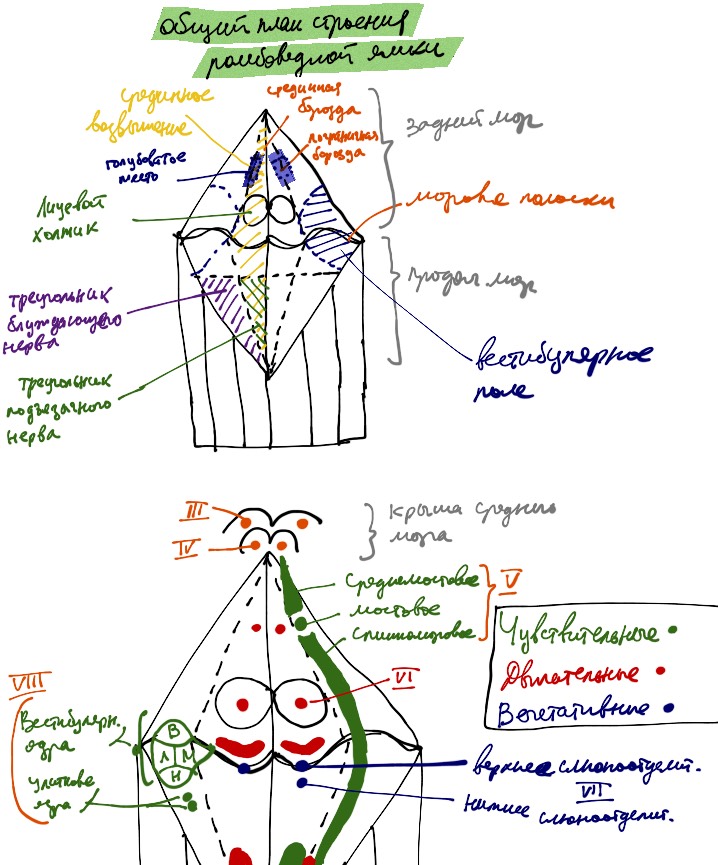 общий план строения
ромбовидной ямки
срединное
возвышение
срединная
борозда
пограничная
борозда
голубоватое
место
Лицевой
холмик
задний мозг
мозговые полоски
Продол мозг
треугольник
блуждающего
нерва
треугольник
подъязычного
нерва
вестибулярное
поле
III
IV
Крыша среднего
мозга
Среднемозговое
мостовое
спинномозговое
V
Чувствительные
Двигательные
Вегетативные
VI
VIII
Вестибулярн.
ядра
улитковые
ядра
В
Л М
Н
верхнее слюноотделит.
VII
нижнее слюноотделит.